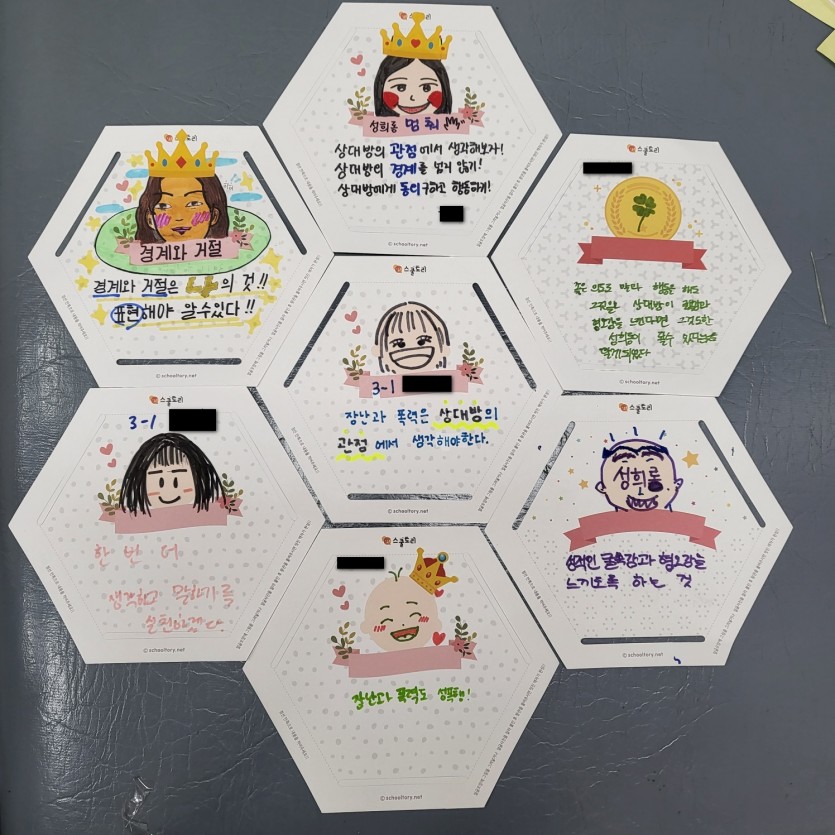 스쿨토리
성희롱 멈춰
상대방의 관점에서 생각해보자!
상대방의 경계를 넘지 않기!
상대방에게 동의구하고 행동하기!
© schooltory.net
스쿨토리
경계와 거절
경계와 거절은 나의 것!!
표현해야 알수있다!!
스쿨토리
좋은 의도로
행동
상대방이
혐오감을 느낀다면 그것또한
성희롱이 될수 있다는
스쿨토리
3-1
장난과 폭력은 상대방의
관점에서 생각해야한다.
© schooltory.net
스쿨토리
3-1
한 번 더
생각하고 말하기를
실천하겠다.
© schooltory.net
스쿨토리
성희롱
성적인 굴욕감과 혐오감을
느끼도록 하는 것
© schooltory.net
스쿨토리
장난과 폭력도 성폭행!
© schooltory.net